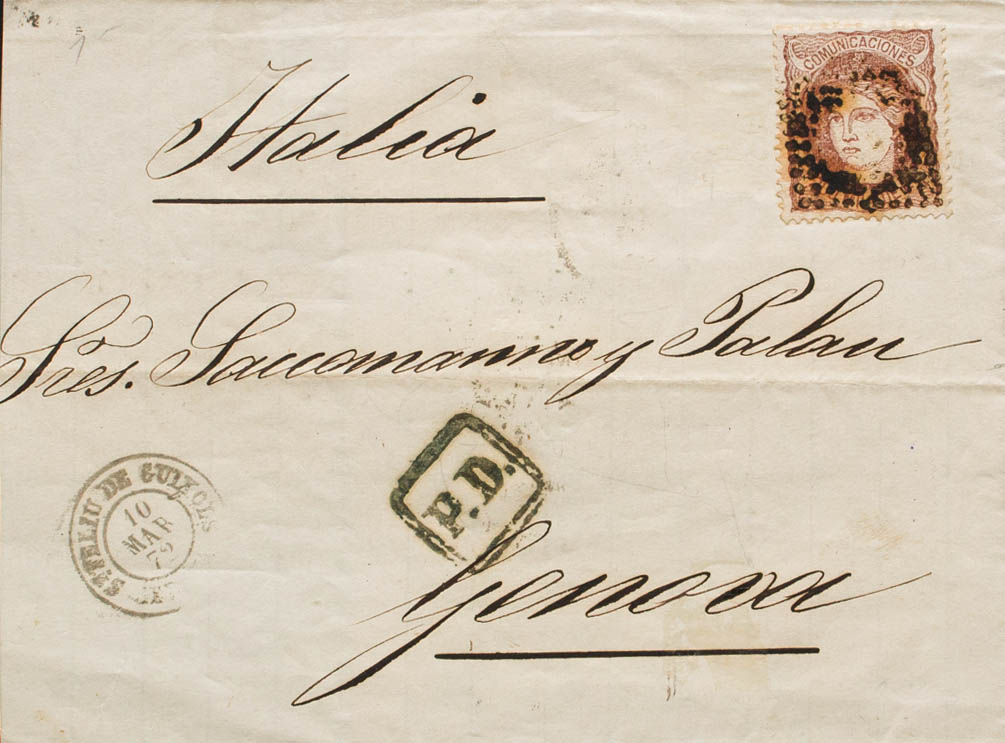 COMUNICACIONES
Italia
Sres. Saccomanno y Palau
P.D.
STFELIU DE GUIXOLS
10
MAR
72
Genova